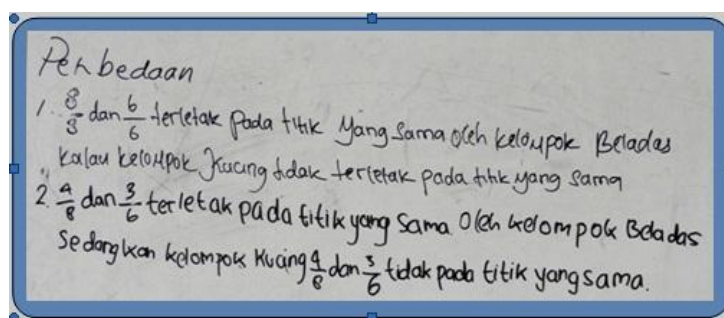 Perbedaan
1. 8/8 dan 6/6 terletak pada titik yang sama oleh kelompok Beladas
kalau kelompok Kucing tidak terletak pada titik yang sama
2. 4/8 dan 3/6 terletak pada titik yang sama oleh kelompok Beladas
Sedangkan kelompok Kucing 4/8 dan 3/6 tidak pada titik yang sama.